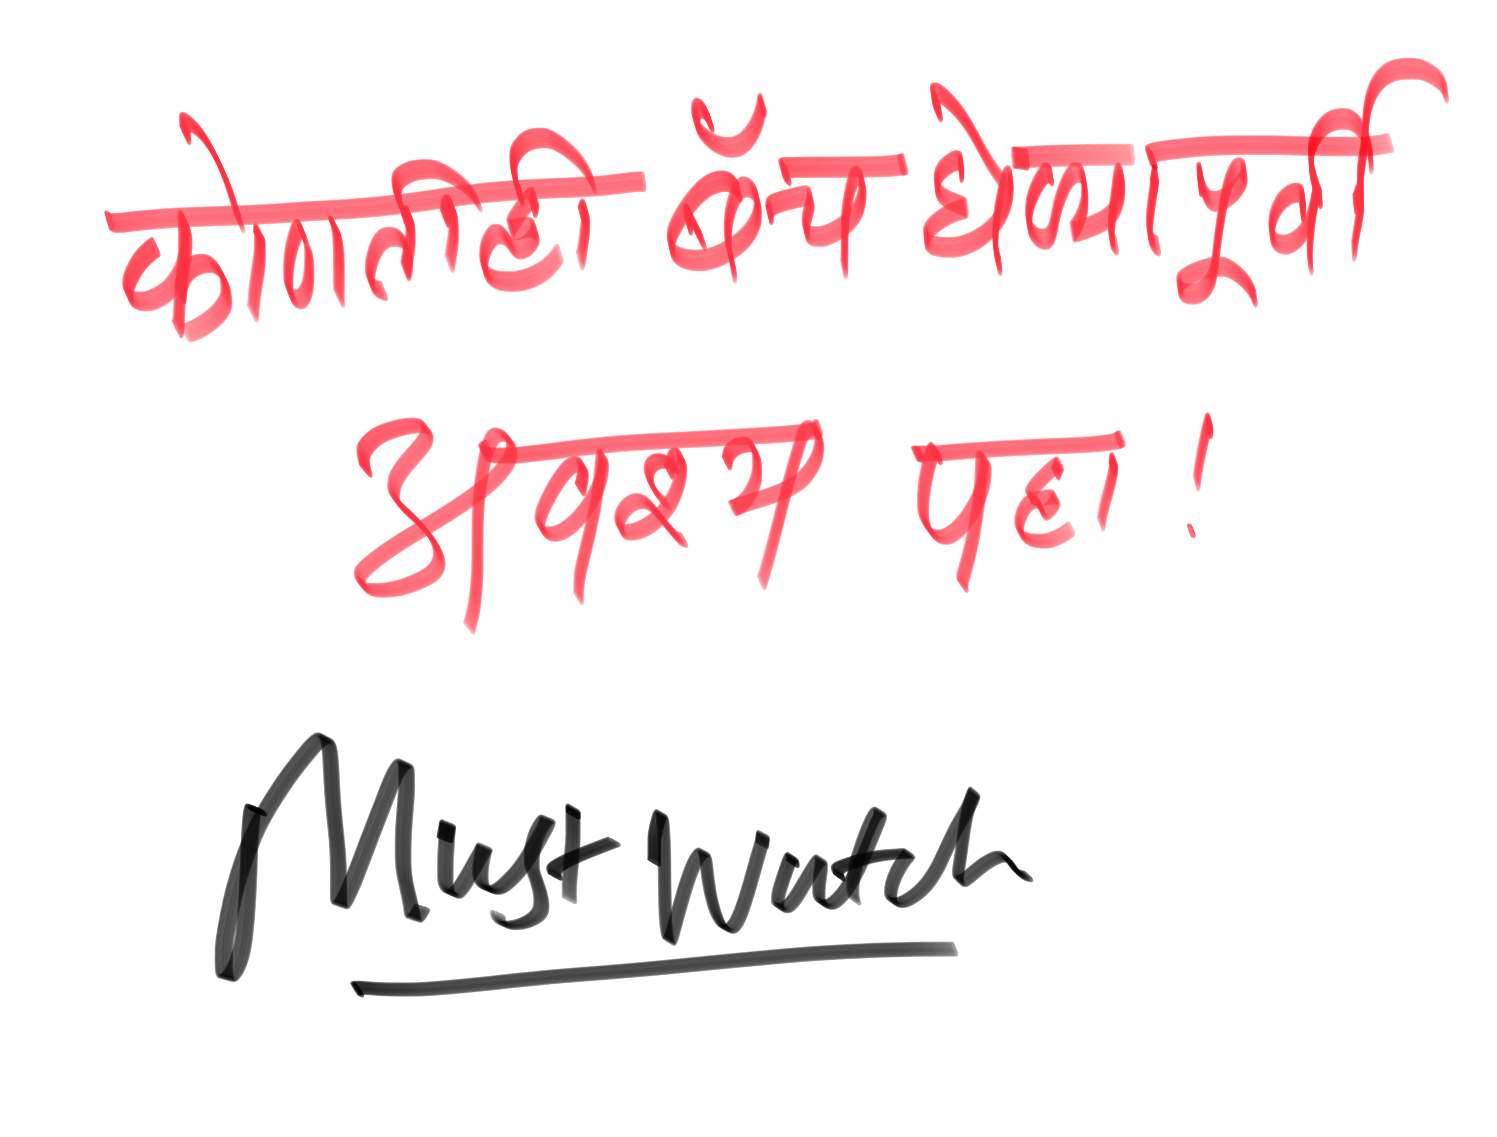 कोणतीही बॅच घेण्यापूर्वी
अवश्य पहा!
Must Watch